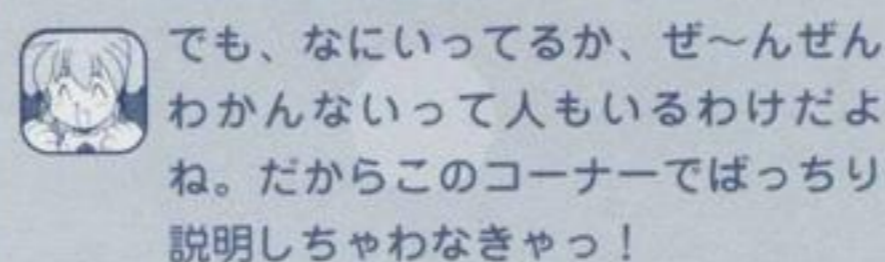 でも、なにいってるか、ぜ〜んぜん
わかんないって人もいるわけだよ
ね。だからこのコーナーでばっちり
説明しちゃわなきゃっ！